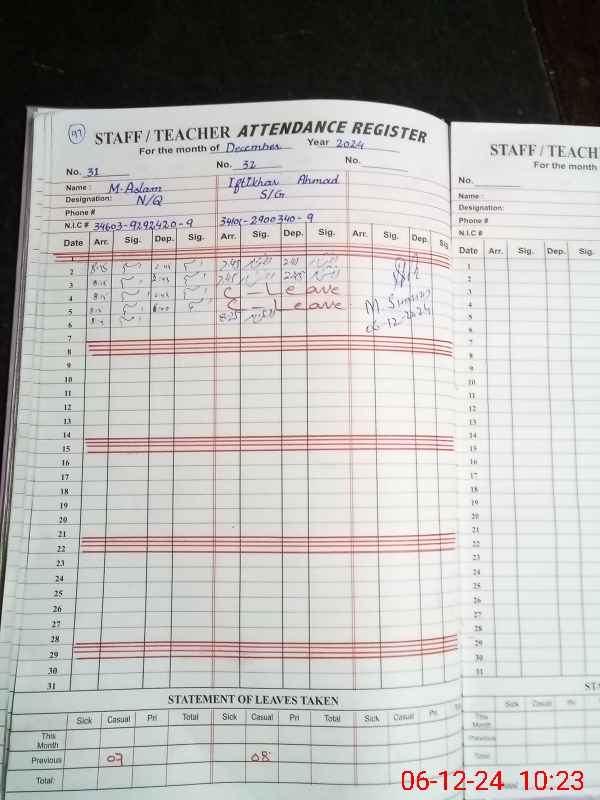 97
STAFF / TEACHER ATTENDANCE REGISTER
For the month of December Year 2024
No. 31 No. 32 No.
Name : M. Aslam Iftikhar Ahmad
Designation: N/Q S/G
Phone #
N.I.C # 34603-9292420-9 34101-2900340-9
Date Arr. Sig. Dep. Sig. Arr. Sig. Dep. Sig. Arr. Sig. Dep. Sig
1
2 8:15 7:45
3 8:15 7:45 2:45
4 8:15 C - Leave
5 8:15 C - Leave
6 8:25
06-12-2024
7
8
9
10
11
12
13
14
15
16
17
18
19
20
21
22
23
24
25
26
27
28
29
30
31
STATEMENT OF LEAVES TAKEN
Sick Casual Pri Total Sick Casual Pri Total Sick Casual Pri Total
This Month
Previous 07 08
Total:
STAFF / TEACH
For the month
No.
Name :
Designation:
Phone #
N.I.C #
Date Arr. Sig. Dep. Sig.
1
2
3
4
5
6
7
8
9
10
11
12
13
14
15
16
17
18
19
20
21
22
23
24
25
26
27
28
29
30
31
STA
Sick Casual Pri Total
This Month
Previous
Total:
06-12-24 10:23